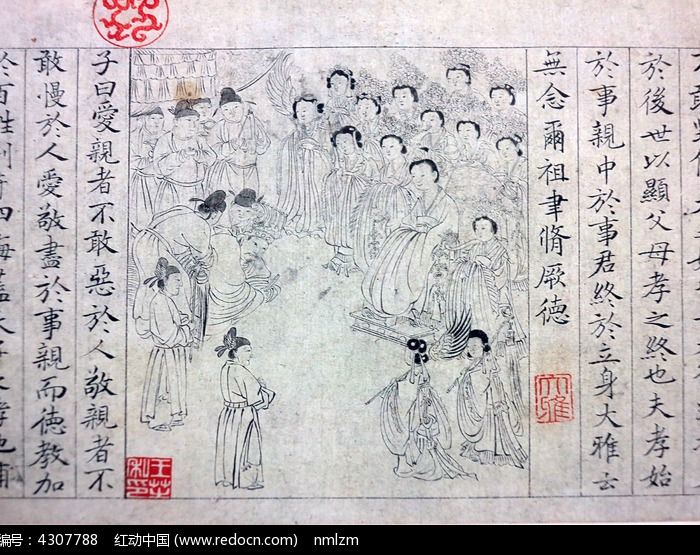 於後世以顯父母孝之終也夫孝始
於事親中於事君終於立身大雅云
無念爾祖聿脩厥德
子曰愛親者不敢惡於人敬親者不
敢慢於人愛敬盡於事親而德教加
於百姓刑于四海蓋天子之孝也甫
编号: 4307788 红动中国 (www.redocn.com) nmlzm